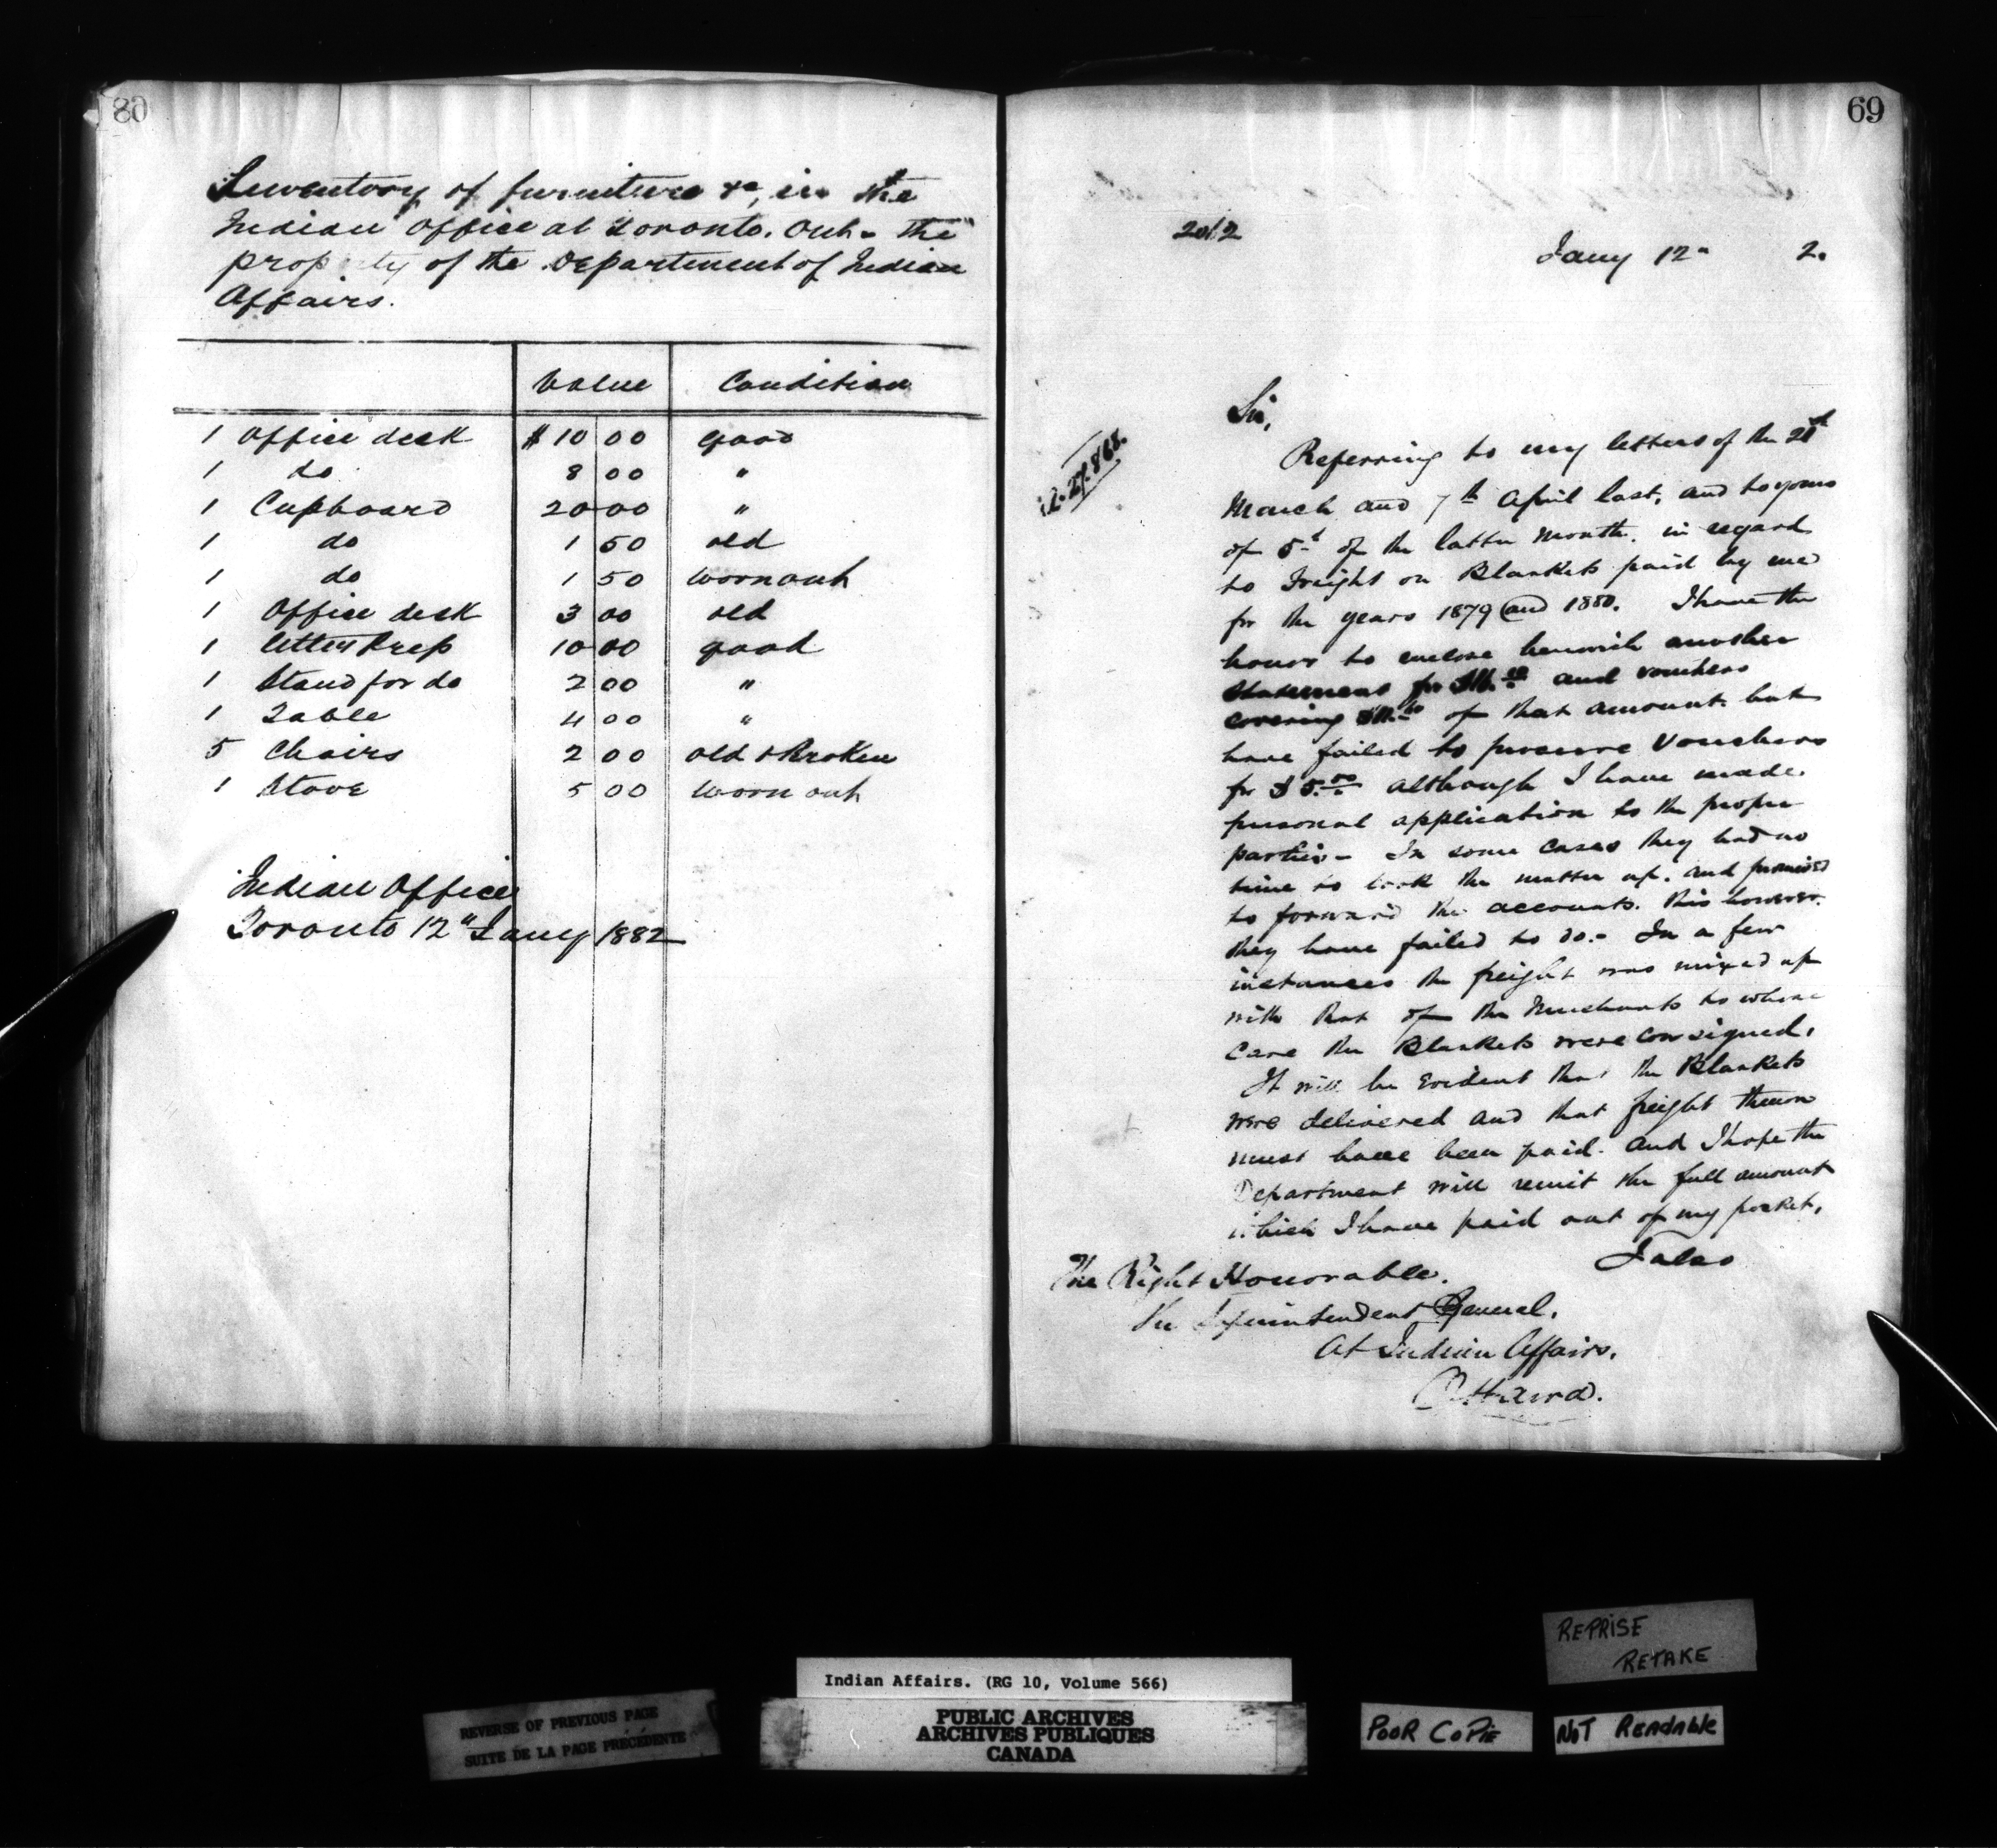 80
Inventory of furniture &c, in the
Indian Office at Toronto. Ont. the
property of the Department of Indian
Affairs.
Value Condition
1 Office desk $10 00 good
1 do 8 00 "
1 Cupboard 20 00 "
1 do 1 50 old
1 do 1 50 worn out
1 Office desk 3 00 old
1 letter Press 10 00 good
1 Stand for do 2 00 "
1 Table 4 00 "
5 Chairs 2 00 old & Broken
1 Stove 5 00 worn out
Indian Office
Toronto 12" Jany 1882
69
Jany 12" 2.
Sir,
Referring to my letters of the
March and 7th April last, and to yours
of 5th of the latter month, in regard
to Freight on Blankets paid by me
for the years 1879 and 1880. I have the
honor to enclose herewith another
statement for and vouchers
covering of that amount. but
have failed to procure Vouchers
for $5.00 although I have made
personal application to the proper
parties - In some cases they had no
time to look the matter up. and promised
to forward the accounts. this however
they have failed to do. - In a few
instances the freight was mixed up
with that of the Merchants to whose
Care the Blankets were consigned.
It will be evident that the Blankets
were delivered and that freight thereon
must have been paid. and I hope the
Department will remit the full amount
which I have paid out of my pocket.
I also
The Right Honorable.
The Superintendent General.
of Indian Affairs.
Ottawa.
REPRISE
RETAKE
Indian Affairs. (RG 10, Volume 566)
REVERSE OF PREVIOUS PAGE
SUITE DE LA PAGE PRÉCÉDENTE
PUBLIC ARCHIVES
ARCHIVES PUBLIQUES
CANADA
POOR COPIE
NOT READABLE